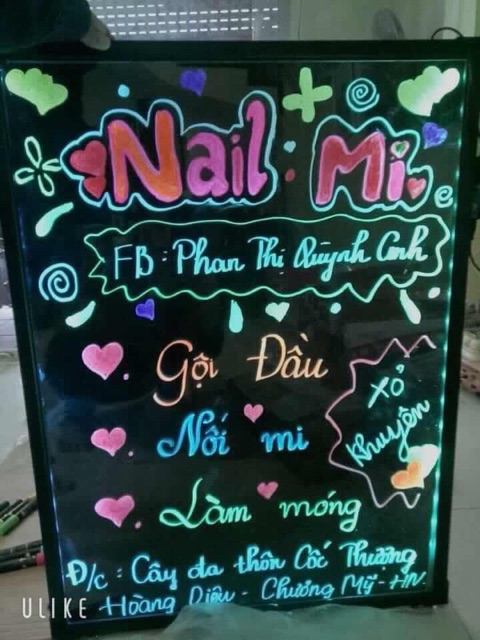 Nail Mi
FB : Phan Thị Quỳnh Anh
Gội Đầu
Nối mi
Làm móng
Xỏ
Khuyên
Đ/c : Cây đa thôn Cốc Thượng
Hoàng Diệu - Chương Mỹ - HN
ULIKE